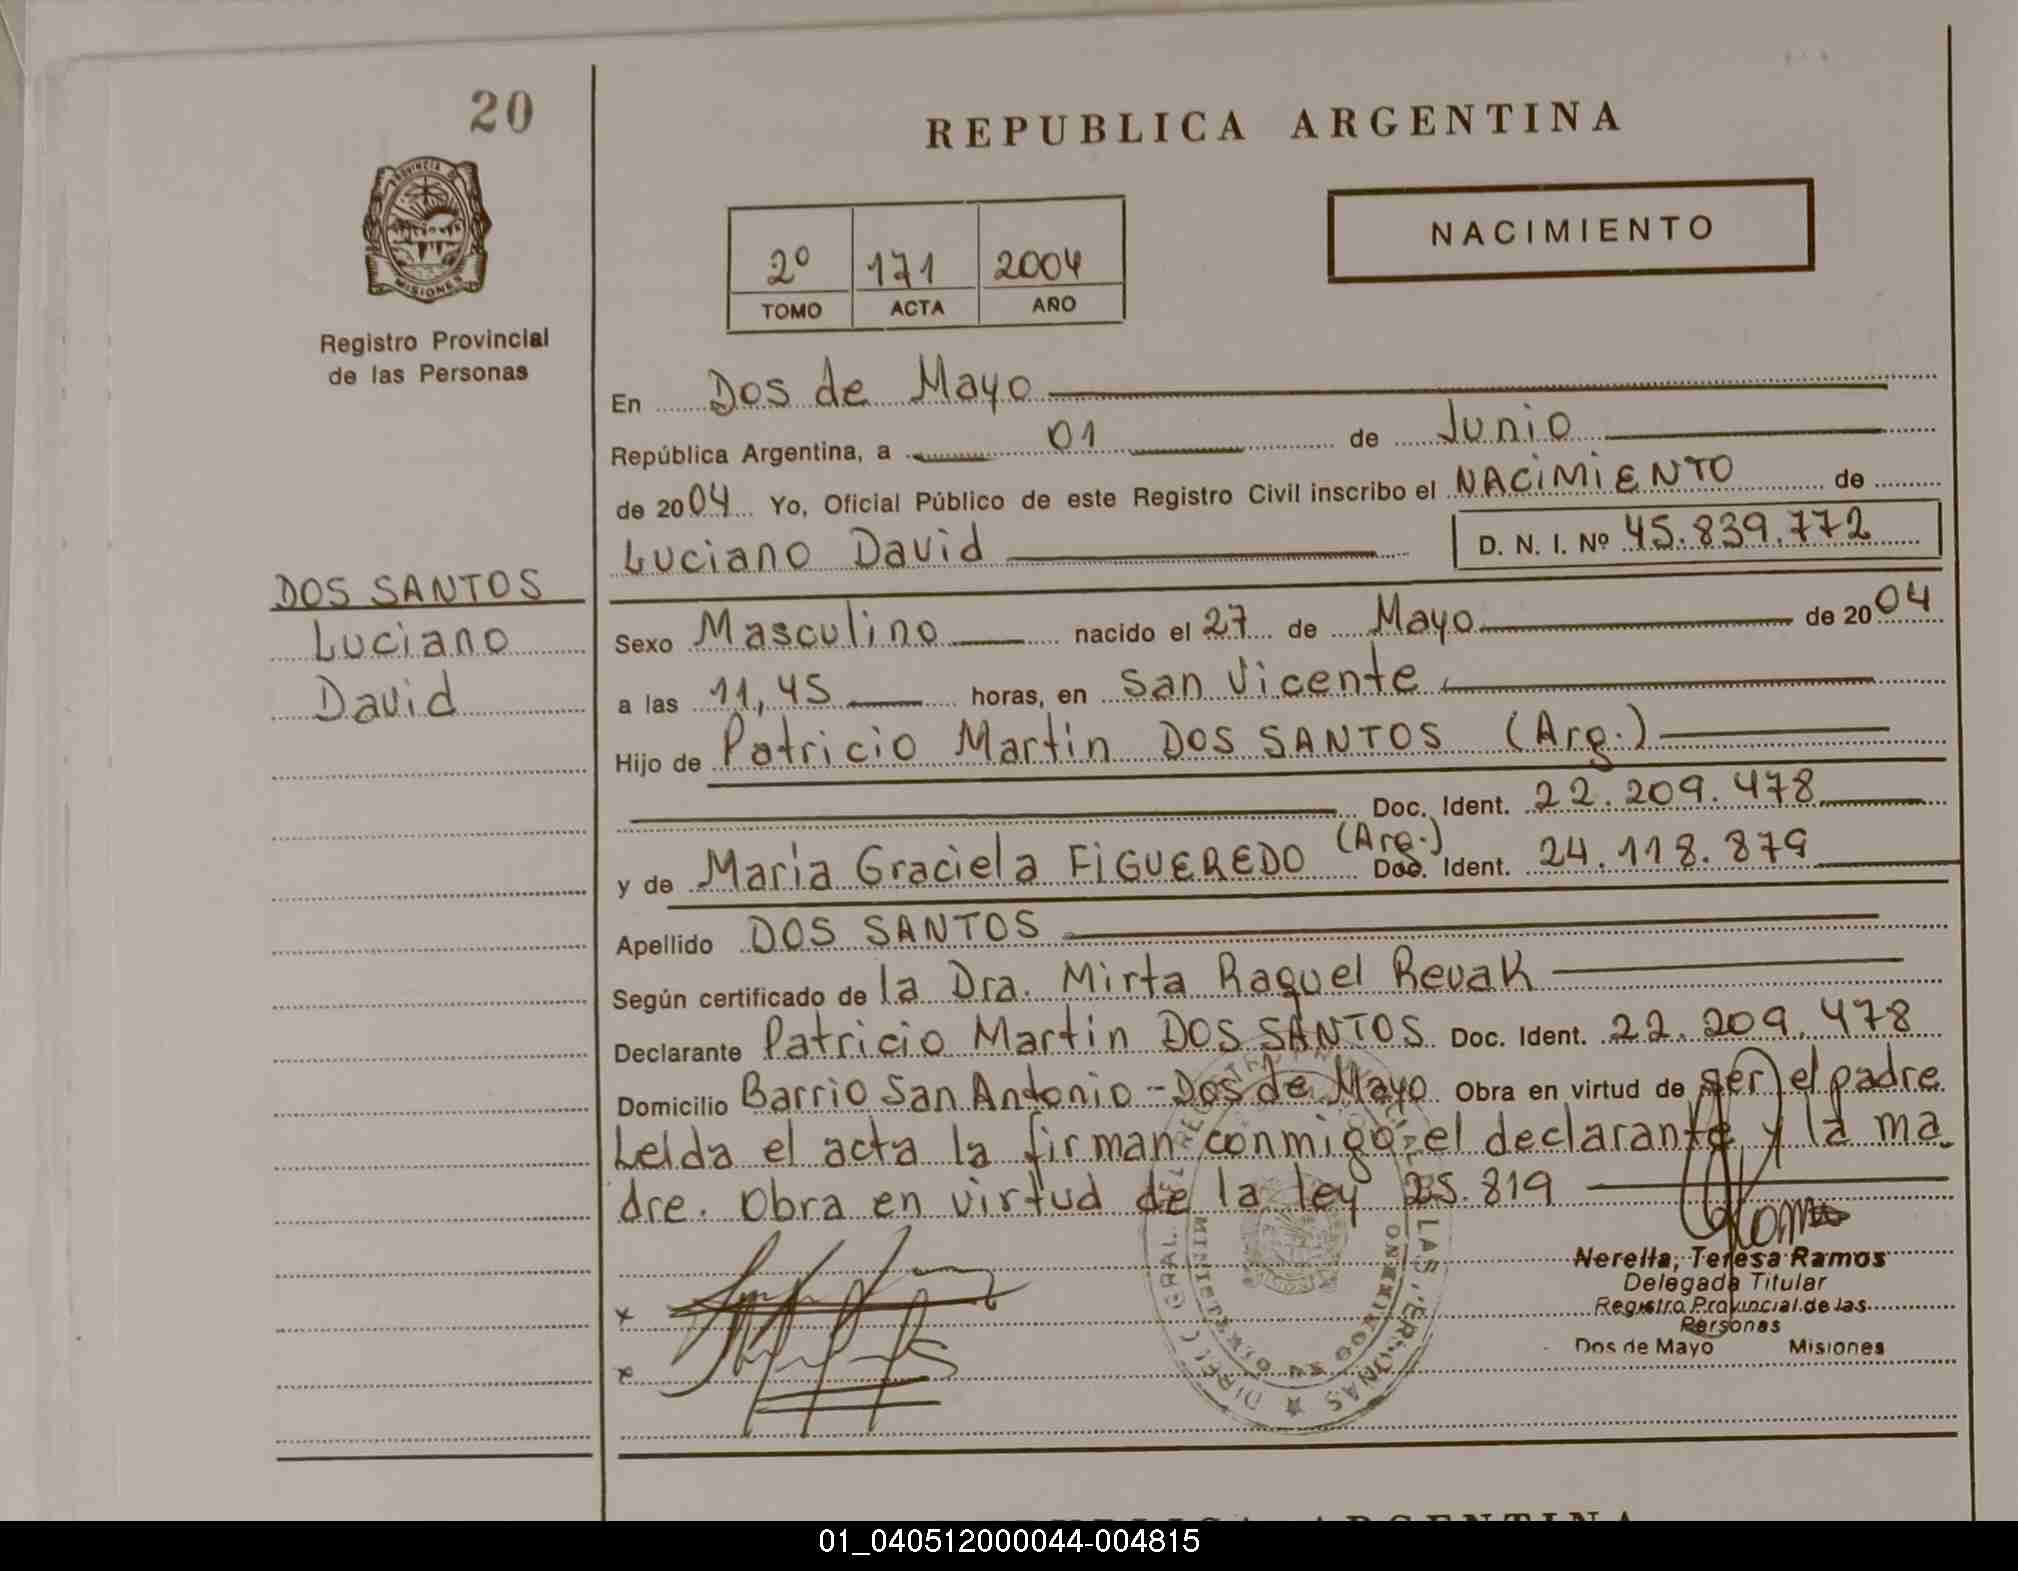 20
REPUBLICA ARGENTINA
NACIMIENTO
2º 171 2004
TOMO ACTA AÑO
PROVINCIA DE
MISIONES
Registro Provincial
de las Personas
En Dos de Mayo
República Argentina, a 01 de Junio
de 2004 Yo, Oficial Público de este Registro Civil inscribo el NACIMIENTO de
Luciano David D. N. I. Nº 45.839.772
DOS SANTOS
Luciano
David
Sexo Masculino nacido el 27 de Mayo de 2004
a las 11,45 horas, en San Vicente
Hijo de Patricio Martin DOS SANTOS (Arg.)
Doc. Ident. 22.209.478
y de Maria Graciela FIGUEREDO (Arg.) Doc. Ident. 24.118.879
Apellido DOS SANTOS
Según certificado de la Dra. Mirta Raquel Revak
Declarante Patricio Martin DOS SANTOS Doc. Ident. 22.209.478
Domicilio Barrio San Antonio - Dos de Mayo Obra en virtud de ser el padre
Leida el acta la firman conmigo el declarante y la ma-
dre. Obra en virtud de la ley 25.819
Nerella, Teresa Ramos
Delegada Titular
Registro Provincial de las
Personas
Dos de Mayo Misiones
REPUBLICA ARGENTINA
01_040512000044-004815